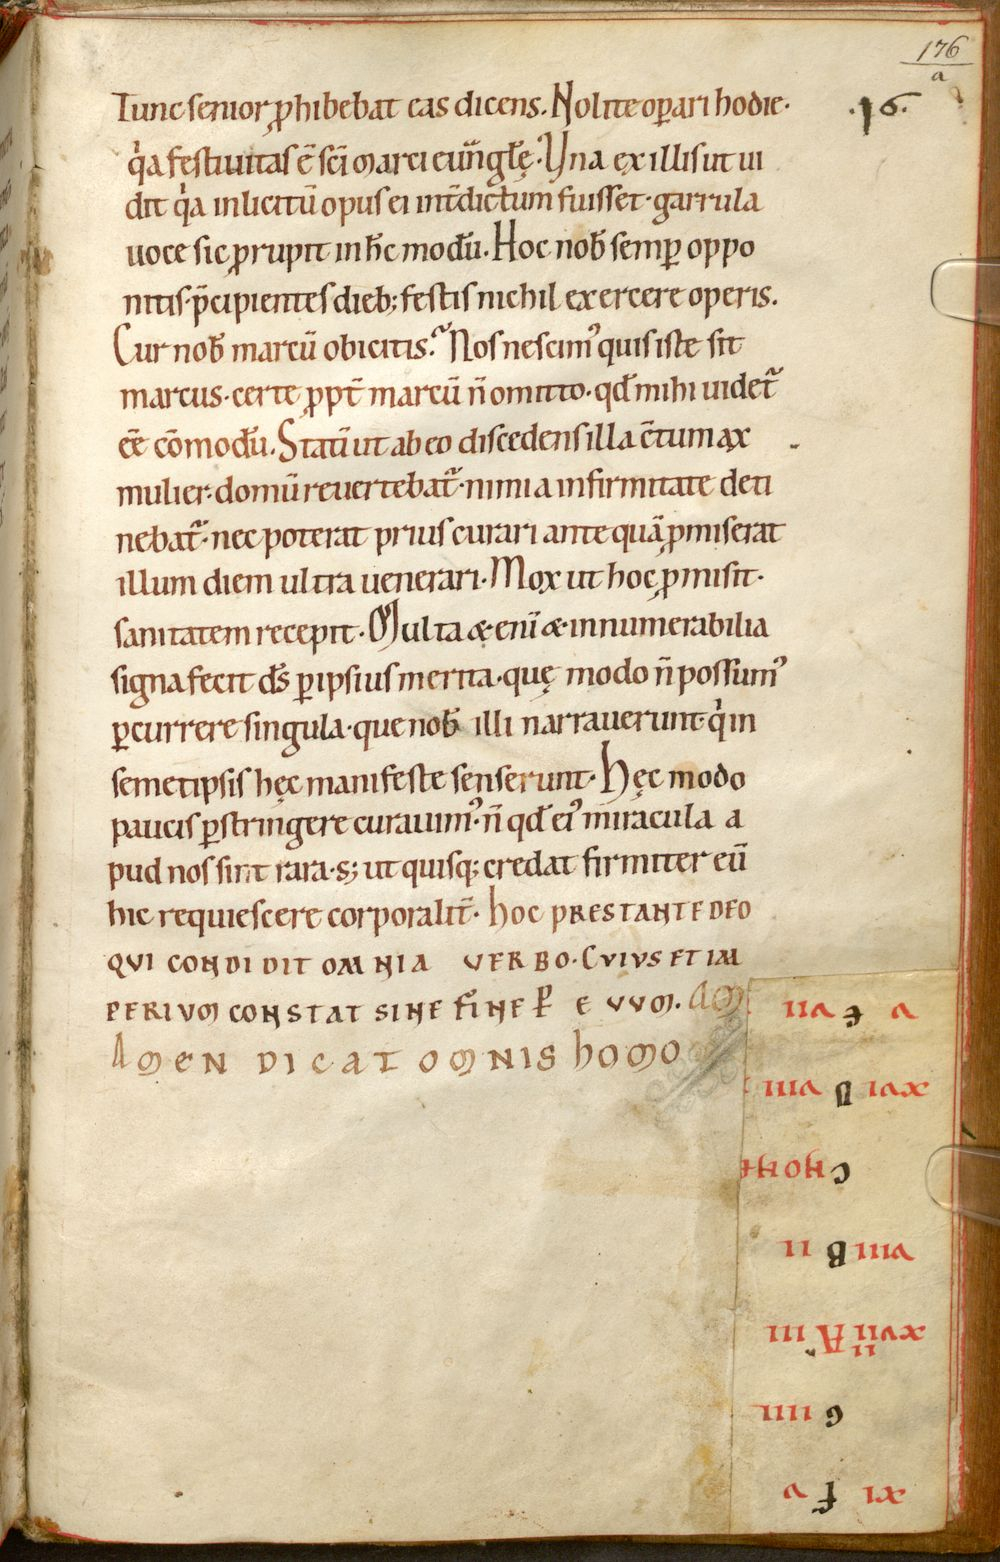 176
a
.16.
Tunc senior ꝓhibebat eas dicens. Nolite oꝑari hodie.
q̍a festiuitas ē sc̄i marci eūngl̄ę. Vna ex illis ut ui
dit q̍a inlicitū opus ei int̄dictum fuisset. garrula
uoce sic ꝓrupit in hc̄ modū. Hoc nob̄ semꝑ oppo
nitis. p̄cipientes dieb; festis nichil exercere operis.
Cur nob̄ marcū obicitis? Nos nescim᾽ quis iste sit
marcus. certe ꝓpt̄ marcū n̄ omitto. qd̄ mihi uidet᷑
eē cōmodū. Statī ut ab eo discedens illa c̄tumax
mulier. domū reuertebat᷑. nimia infirmitate deti
nebat᷑. nec poterat prius curari ante quā ꝓmiserat
illum diem ultra uenerari. Mox ut hoc ꝓmisit.
sanitatem recepit. Multa & enī & innumerabilia
signa fecit ds̄ ꝑ ipsius merita. quę modo n̄ possum᾽
ꝑcurrere singula. que nob̄ illi narrauerunt. q̍ in
semetipsis hęc manifeste senserunt. Hęc modo
paucis ꝑstringere curauim᾽. n̄ qd̄ ei᾽ miracula a
pud nos sint rara. s; ut quisq; credat firmiter eū
hic requiescere corporalit̄. hoc PRESTANTE DEO
QUI CONDIDIT OMNIA VERBO. CUIUS ET IM
PERIUM CONSTAT SINE FINE P̄ E VVM. AM
AMEN DICAT OMNIS HOMO
xi f v
G iiii
xvii A iii
ii
viii B ii
C NON
xvi D viii
v E vii